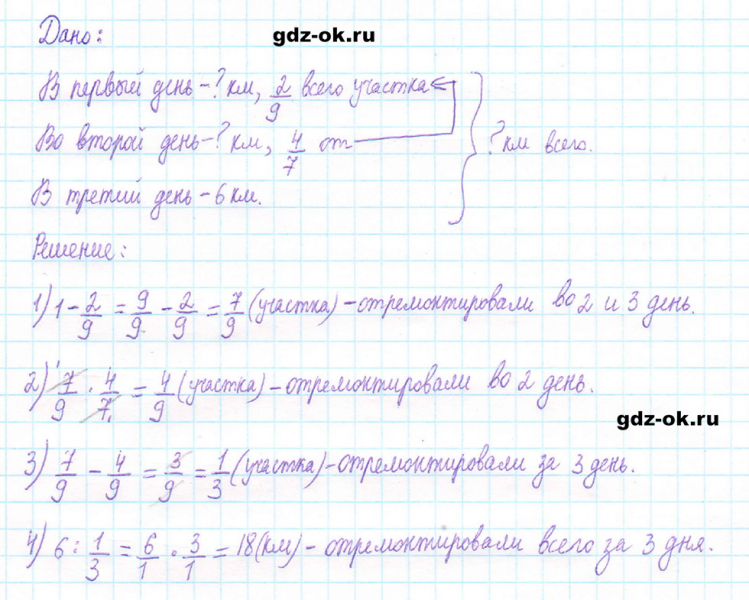 Дано:
gdz-ok.ru
В первый день - ? км, 2/9 всего участка
Во второй день - ? км, 4/7 от
? км всего.
В третий день - 6 км.
Решение:
1) 1 - 2/9 = 9/9 - 2/9 = 7/9 (участка) - отремонтировали во 2 и 3 день.
2) 7/9 · 4/7 = 4/9 (участка) - отремонтировали во 2 день.
gdz-ok.ru
3) 7/9 - 4/9 = 3/9 = 1/3 (участка) - отремонтировали за 3 день.
4) 6 : 1/3 = 6/1 · 3/1 = 18 (км) - отремонтировали всего за 3 дня.